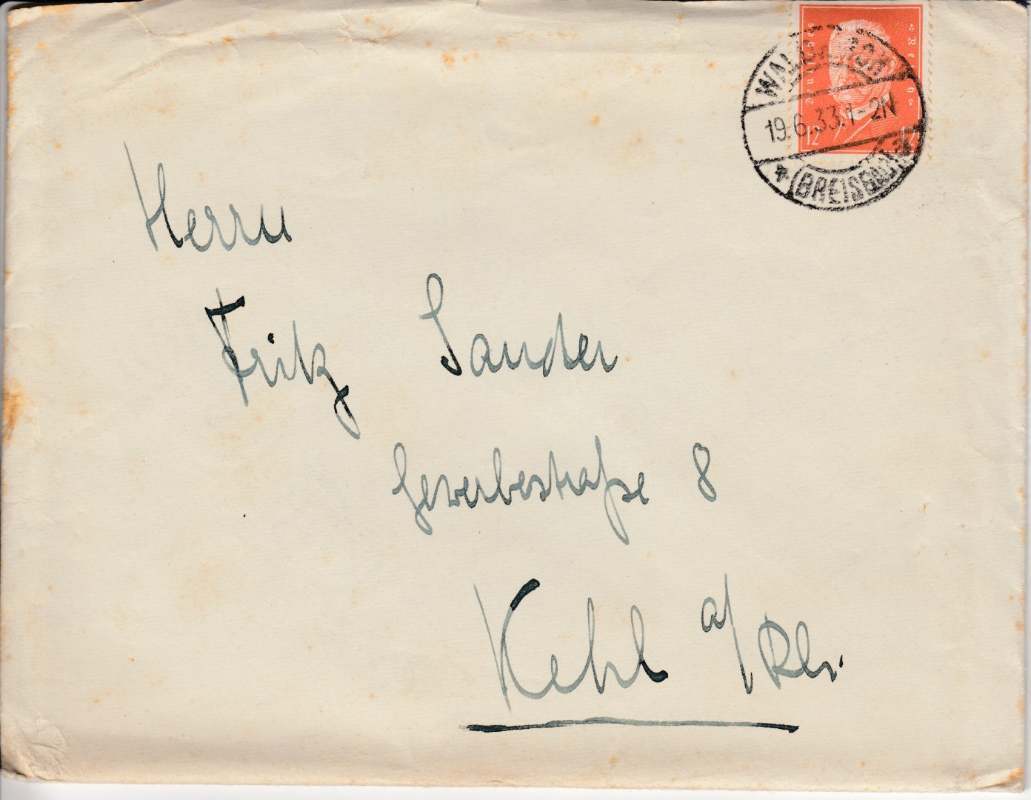 19.6.33.1-2N
(BREISGAU)
12
Herrn
Fritz Sander
Gewerbestraße 8
Kehl a/Rh.